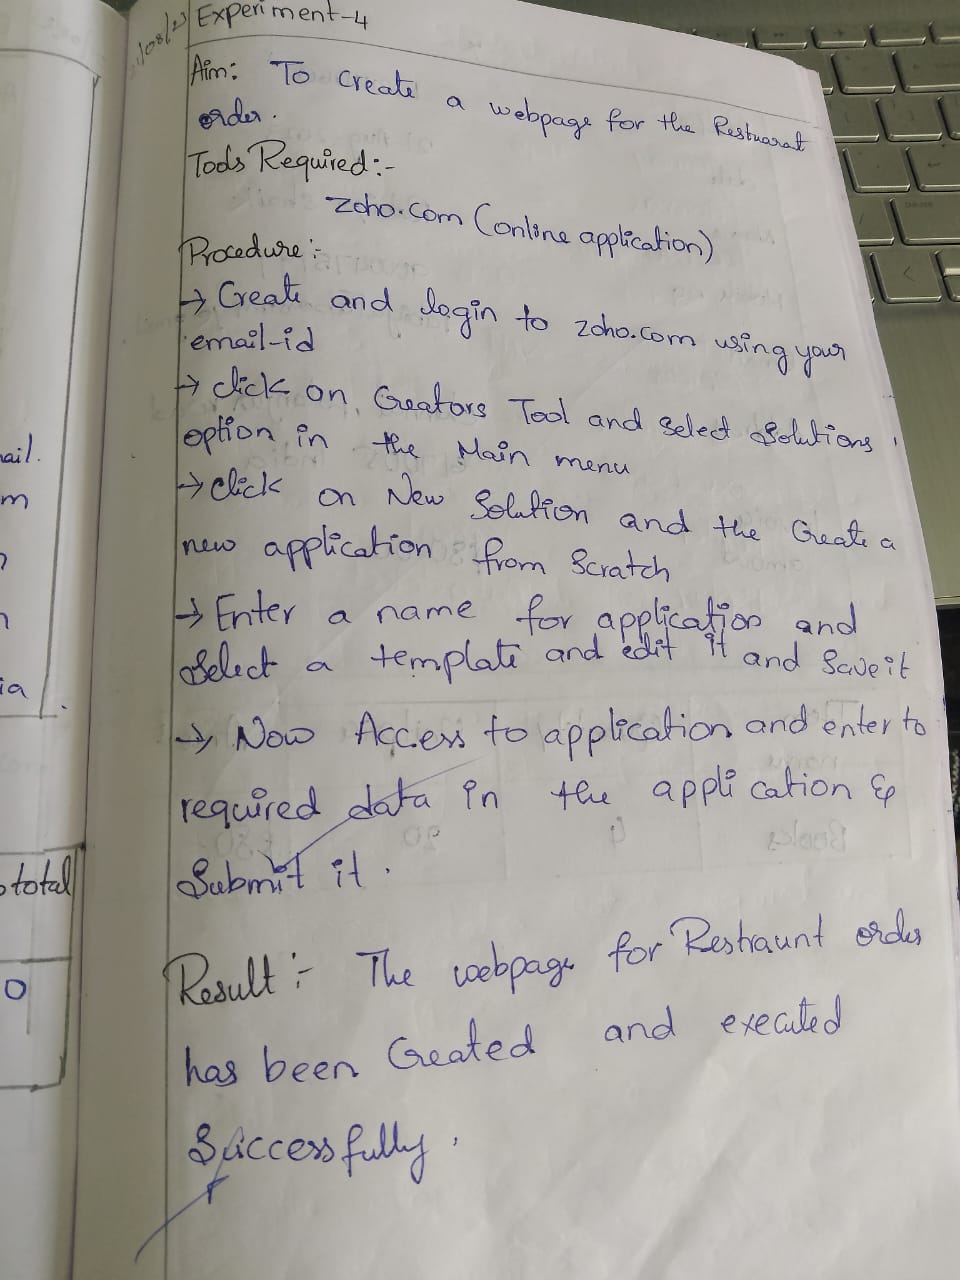 Experiment-4
Aim: To Create a webpage for the Restuarat
order.
Tools Required:-
zoho.com (online application)
Procedure:-
→ Create and login to zoho.com using your
email-id
→ click on Creators Tool and select solutions
option in the Main menu
→ click on New Solution and the Create a
new application from Scratch
→ Enter a name for application and
Select a template and edit it and Save it
→ Now Access to application and enter to
required data in the application &
Submit it.
Result:- The webpage for Restraunt order
has been Created and executed
Successfully.
ail.
m
ia
total
0